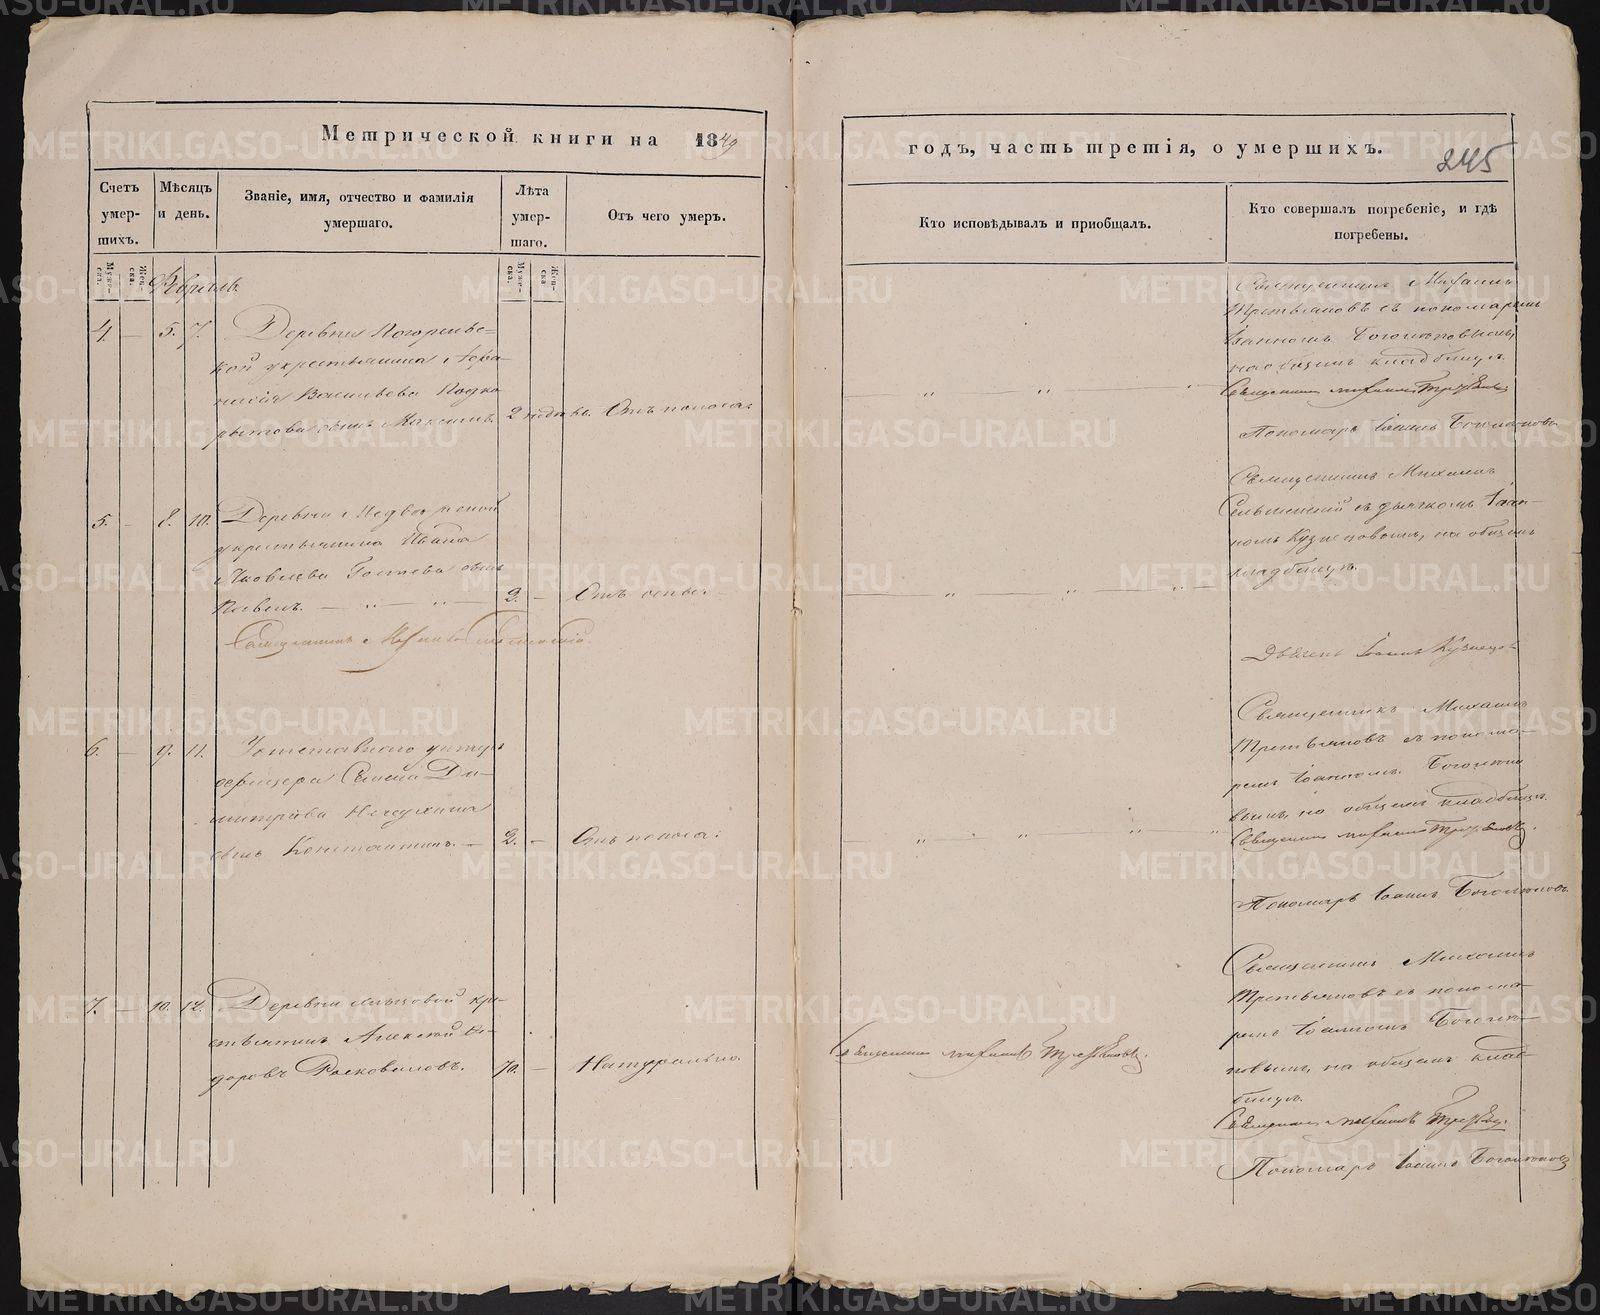 Метрической книги на 1849
годъ, часть третія, о умершихъ.
245
Счетъ умер-шихъ.
Мѣсяцъ и день.
Званіе, имя, отчество и фамилія умершаго.
Лѣта умер-шаго.
Отъ чего умеръ.
Кто исповѣдывалъ и пріобщалъ.
Кто совершалъ погребеніе, и гдѣ погребены.
Муже-ска.
Жен-ска.
Муже-ска.
Жен-ска.
4. — 5. 7. Деревни
кой крестьянина Афа-
насія Васильева
сынъ Максимъ. 2 Отъ поноса.
Священникъ Михаилъ
Третьяковъ съ пономаремъ
Іоанномъ Боголюбовымъ,
на общемъ кладбищѣ.
Священникъ Михаилъ Третьяковъ
Пономарь Іоаннъ Боголюбовъ
5. — 8. 10. Деревни
крестьянина Ивана
Яковлева Гостева сынъ
Павелъ. — „ — „ — 2. — Отъ оспы.
Священникъ Михаилъ
съ дьячкомъ Іоан-
номъ Кузнецовымъ, на общемъ
кладбищѣ.
Священникъ
Дьячекъ Іоаннъ Кузнецовъ
6. — 9. 11. Уотставного унтеръ
офицера Семена Ди-
митріева
сынъ Константинъ. — 2. — Отъ поноса.
Священникъ Михаилъ
Третьяковъ съ понома-
ремъ Іоанномъ Боголюбо
вымъ, на общемъ кладбищѣ.
Священникъ Михаилъ Третьяковъ.
Пономарь Іоаннъ Боголюбовъ
7. — 10. 12. Деревни кре-
стьянинъ Алексей Си-
доровъ Расковаловъ. 70. — Натурально.
Священникъ Михаилъ Третьяковъ.
Священникъ Михаилъ
Третьяковъ съ понома-
ремъ Іоанномъ Боголю-
бовымъ, на общемъ клад-
бищѣ.
Священникъ Михаилъ Третьяковъ.
Пономарь Іоаннъ Боголюбовъ
METRIKI.GASO-URAL.RU